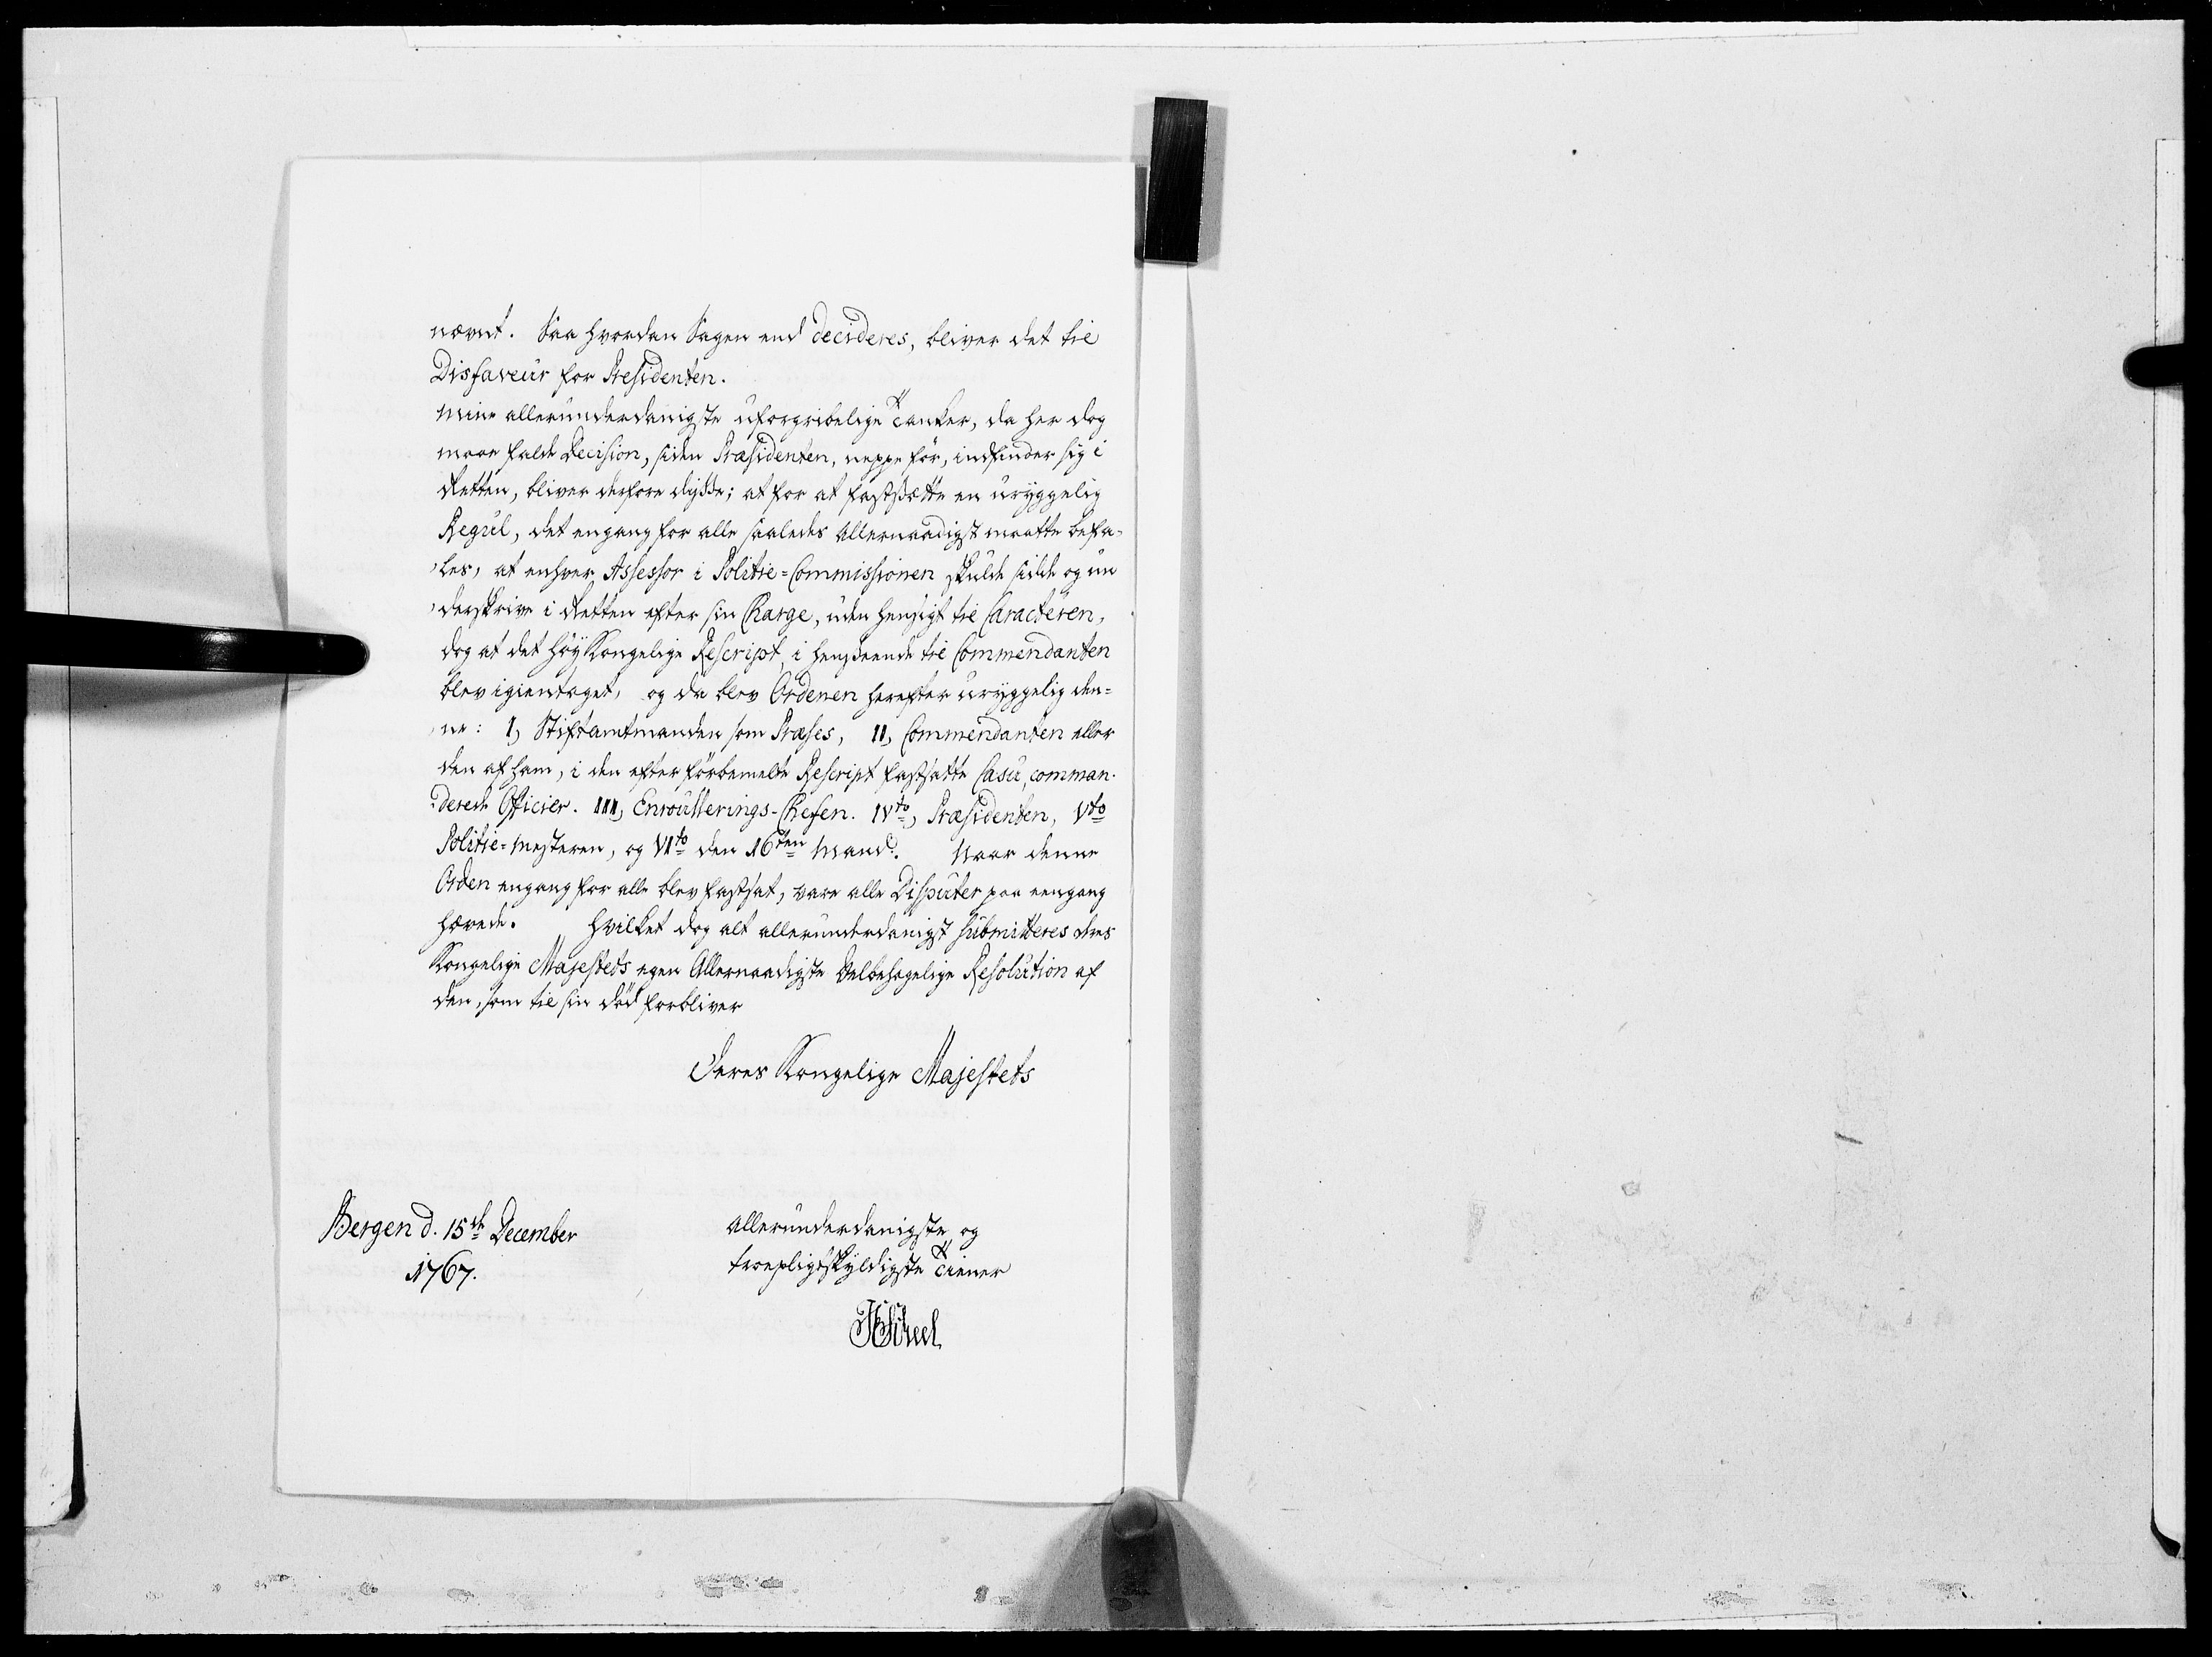 nævnt. Saa hvordan Sagen end decideres, bliver det til
Disfaveur for Presidenten.
Mine allerunderdanigste uforgribelige Tanker, da her dog
maae falde Decision, siden Præsidenten, neppe før, indfinder sig i
Retten, bliver derfore disse; at for at fastsætte en uryggelig
Regul, det engang for alle saaledes Allernaadigst maatte befa-
les, at enhver Assessor i Politie-Commissionen skulde sidde og un
derskrive i Retten efter sin Charge, uden hensigt til Caracteren,
dog at det høyKongelige Rescript, i henseende til Commendanten
blev igientaget, og da blev Ordenen herefter uryggelig den-
ne: I, Stiftamtmanden som Præses, II, Commendanten eller
den af ham, i den efter førbemelte Rescript fastsatte Casu, comman-
derede Officier. III, Enroullerings-Chefen. IVto, Præsidenten, Vto
Politie-Mesteren, og VIto den 16ten Mand. Naar denne
Orden engang for alle blev fastsat, vare alle Disputer paa eengang
hævede. Hvilket dog alt allerunderdanigst submitteres Deres
Kongelige Majestets egen Allernaadigste Velbehagelige Resolution af
den, som til sin død forbliver
Deres Kongelige Majestets
Bergen d. 15de December
1767.
allerunderdanigste og
troepligtskyldigste Tiener